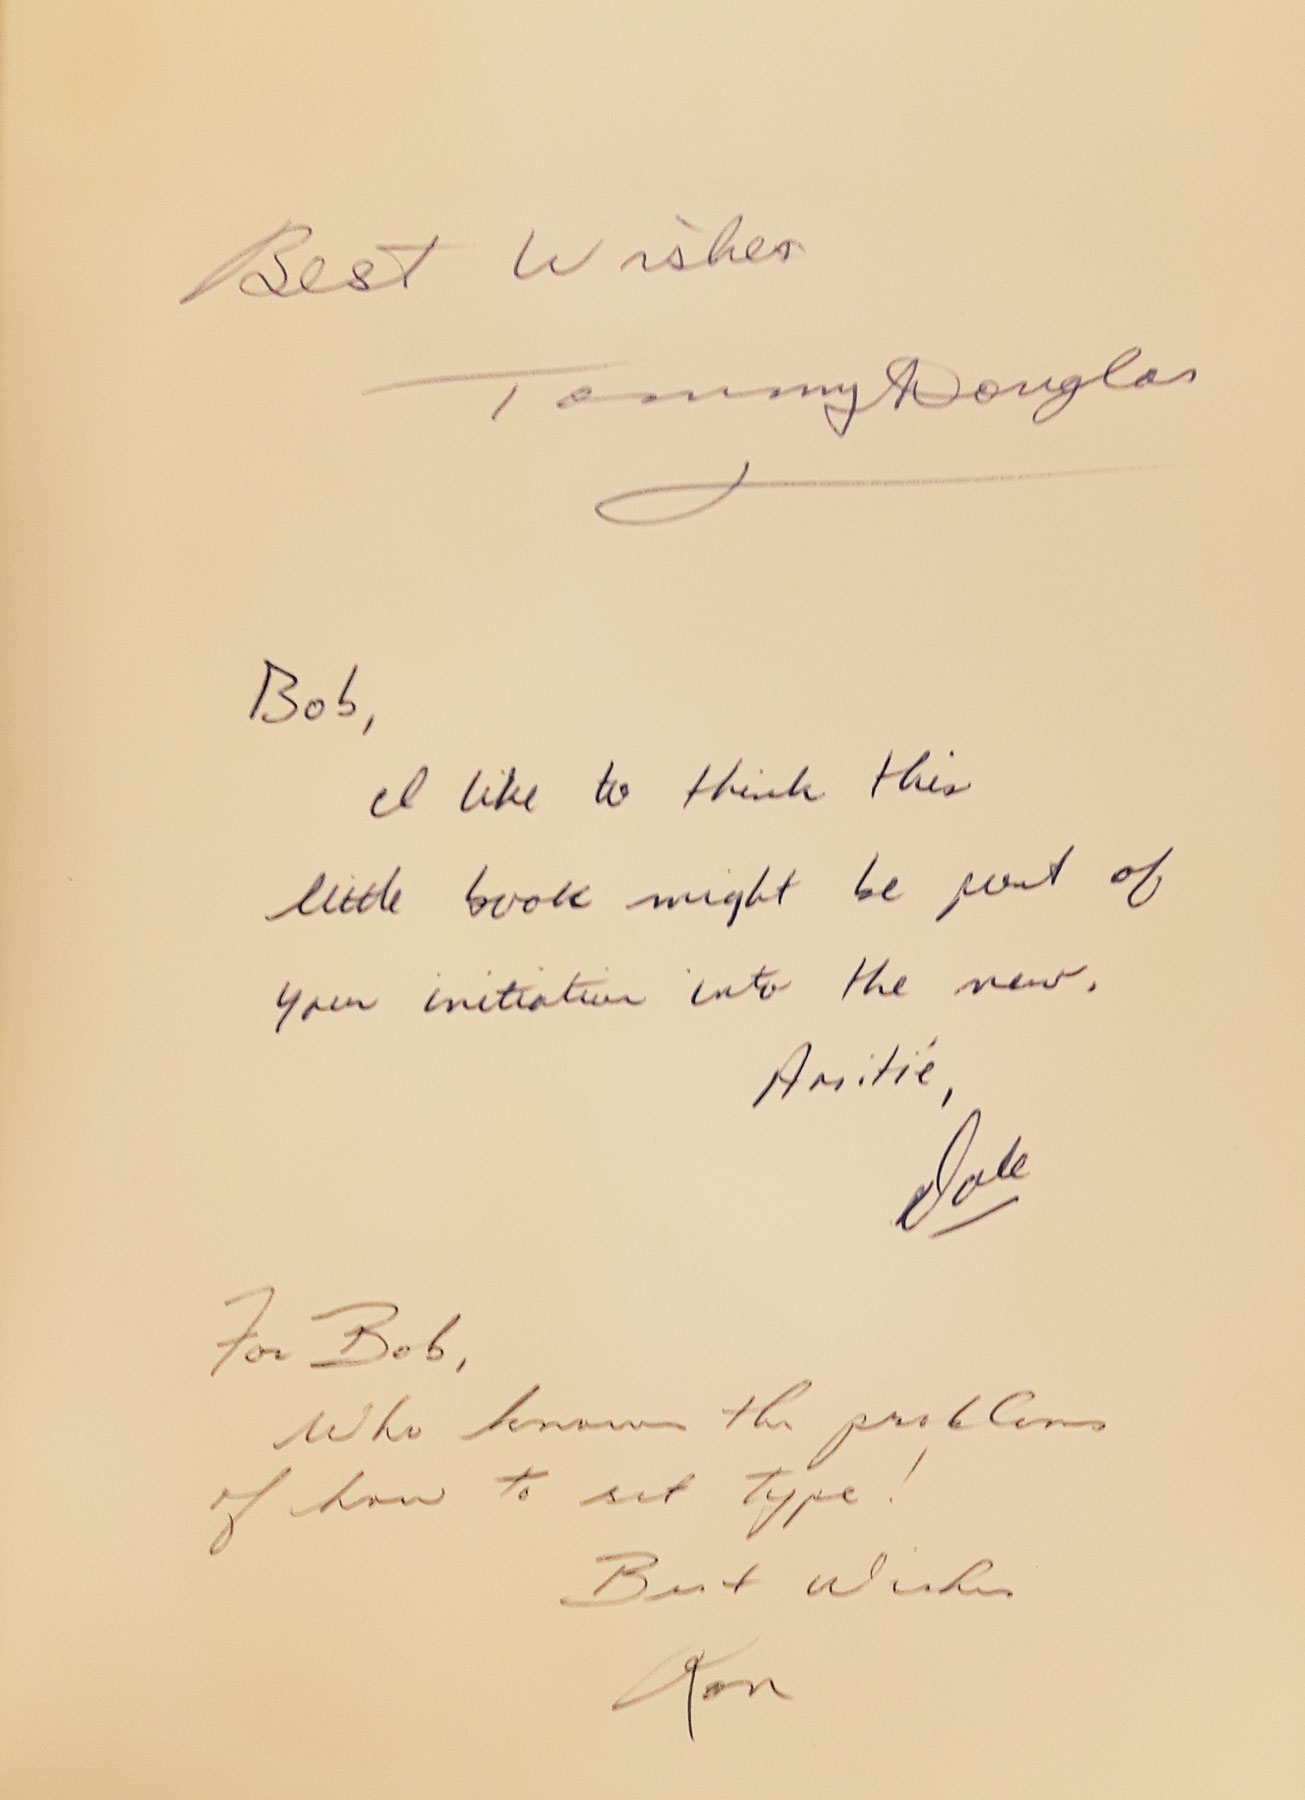 Best Wishes
Tommy Douglas
Bob,
I like to think this
little book might be part of
your initiation into the new.
Amitié,
Dale
For Bob,
Who knows the problems
of how to set type!
Best Wishes
Ron